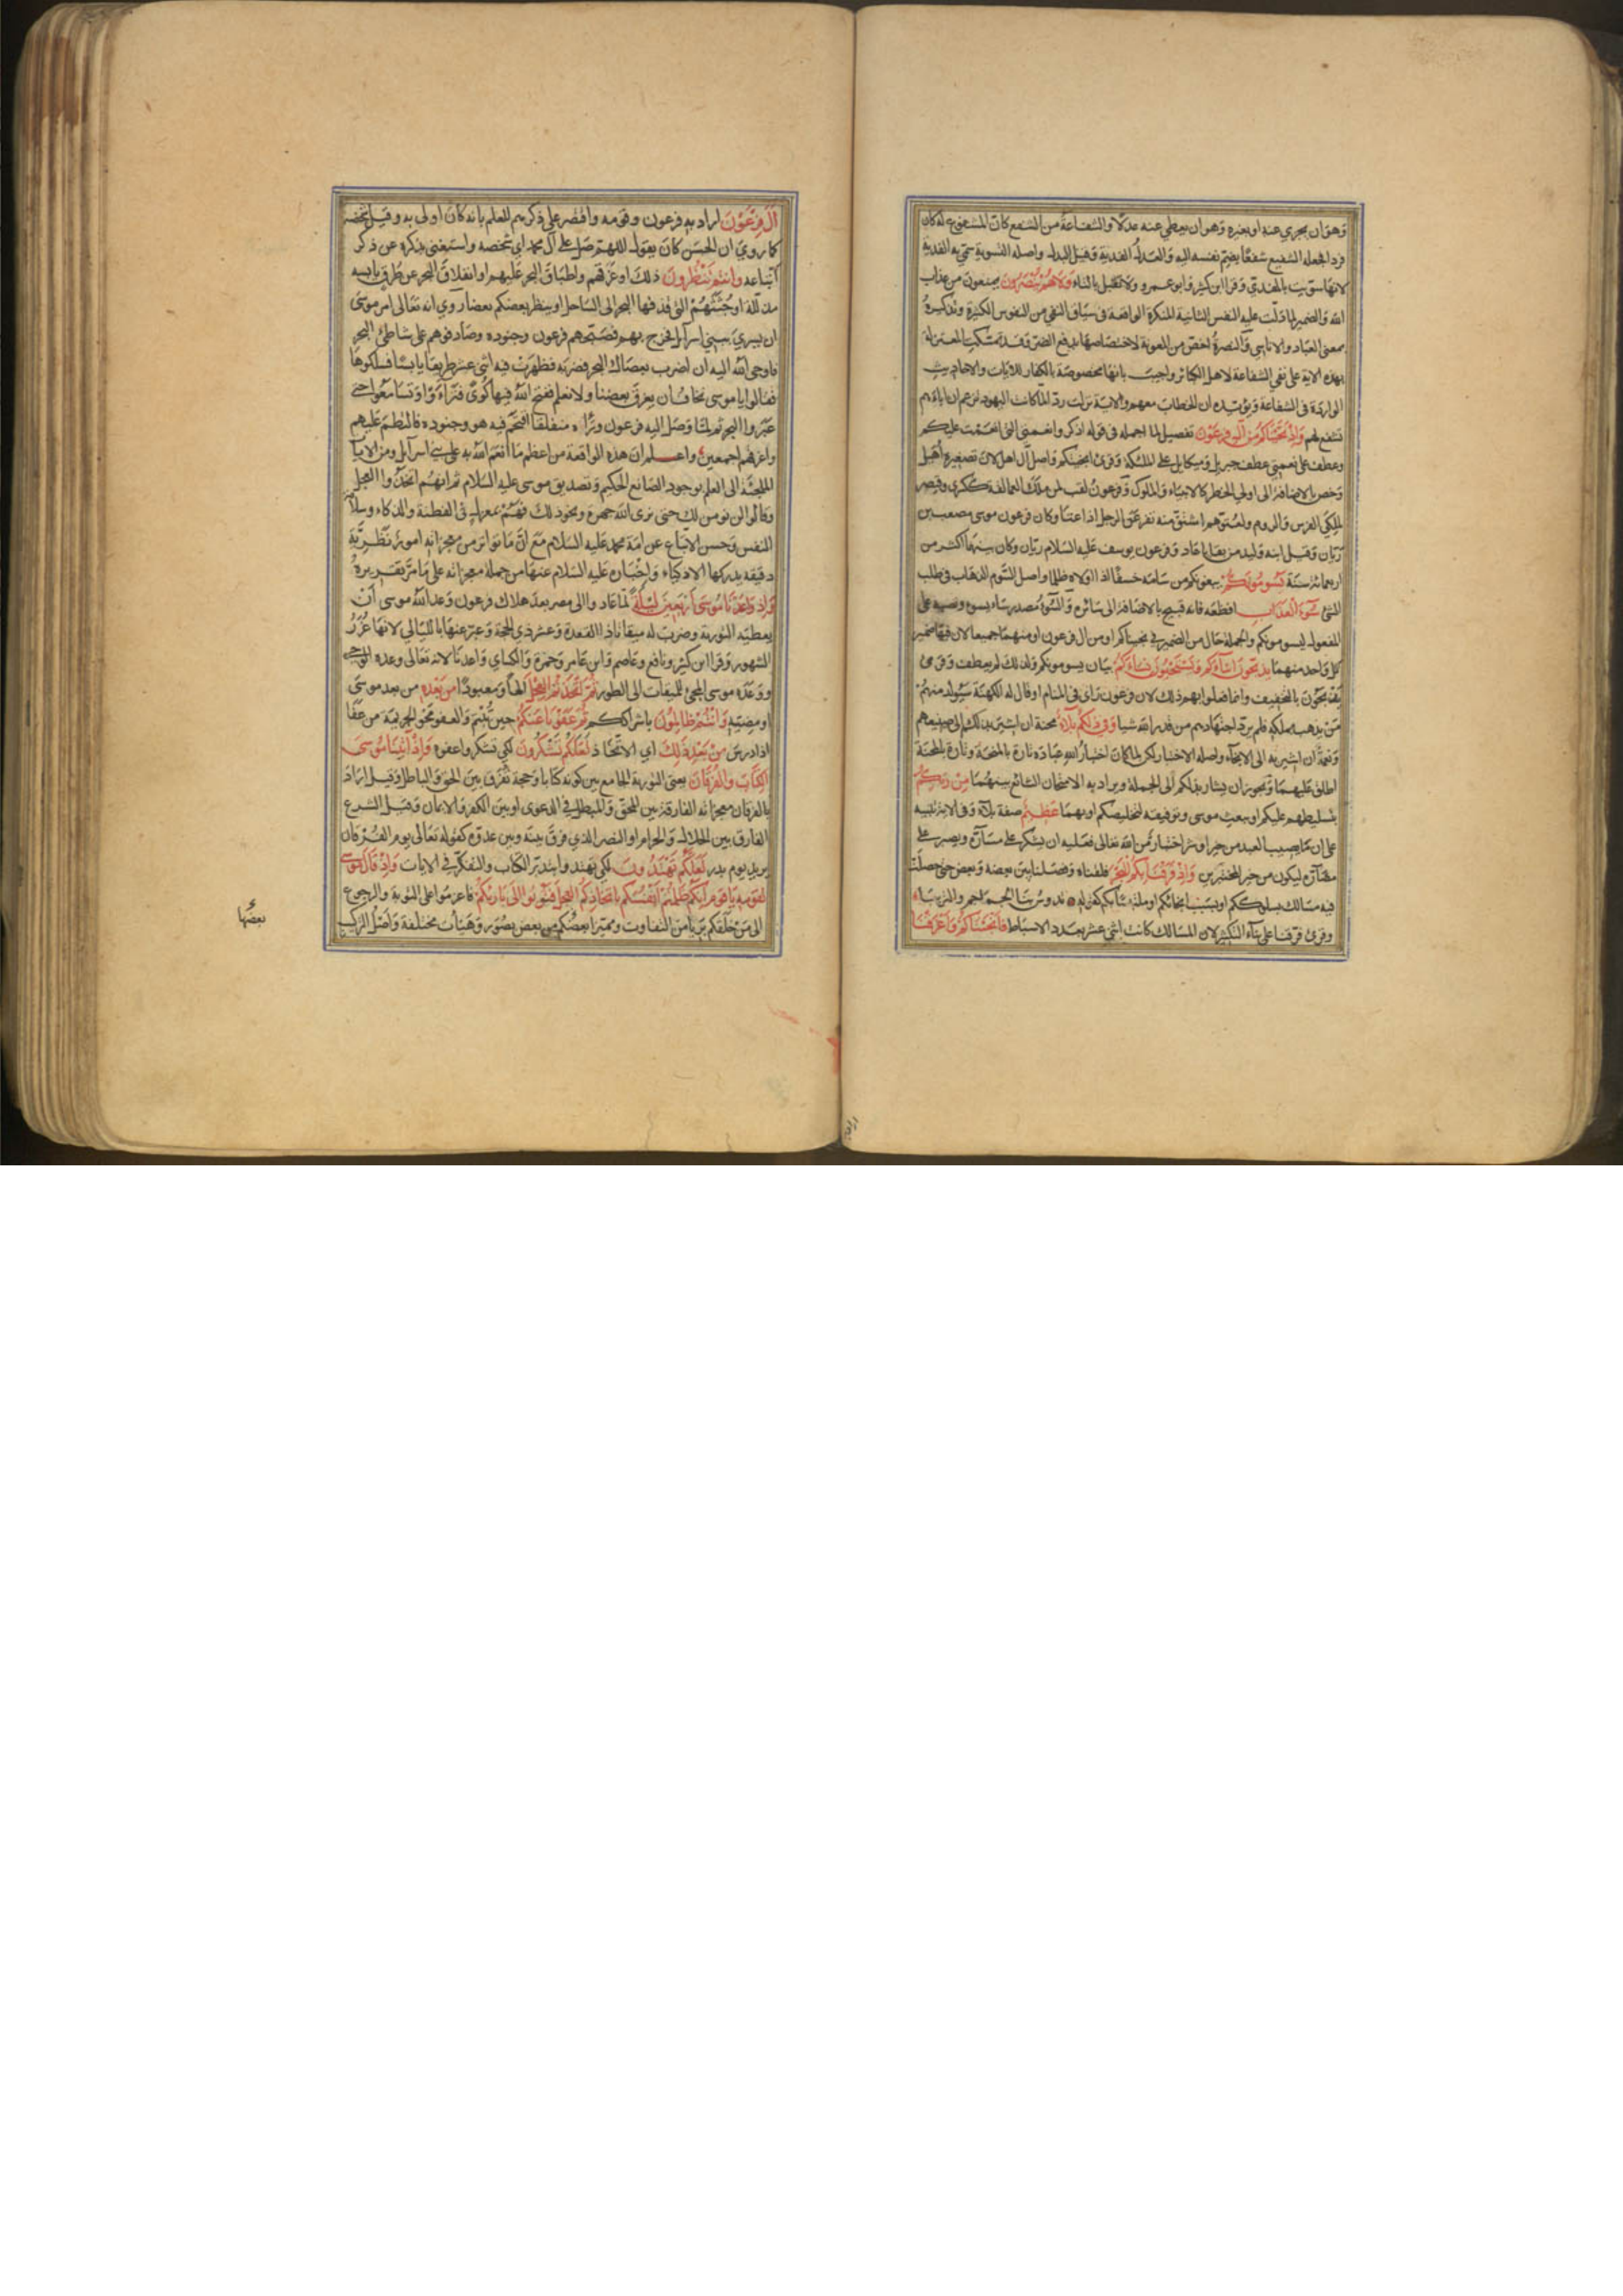 وهو ان يجزي عنه او بغيره وهو ان يعطي عنه عدلا والشفاعة من الشفع كان المشفوع له كان
فردا فجعله الشفيع شفعا بضم نفسه اليه والعدل الفدية وقيل البدل واصله التسوية سمي به الفدية
لانها سويت بالمفدي وقرا ابن كثير وابو عمرو ولا تقبل بالتاء ولا هم ينصرون يمنعون من عذاب
الله والضمير لما دلت عليه النفس الثانية المنكرة الواقعة في سياق النفي من النفوس الكثيرة وتذكيره
بمعنى العباد والاناسي والنصرة اخص من المعونة لاختصاصها بدفع الضر وقد تمسكت المعتزلة
بهذه الاية على نفي الشفاعة لاهل الكبائر واجيب بانها مخصوصة بالكفار للايات والاحاديث
الواردة في الشفاعة ويؤيده ان الخطاب معهم والاية نزلت ردا لما كانت اليهود تزعم ان اباءهم
تشفع لهم واذ نجيناكم من ال فرعون تفصيل لما اجمله في قوله اذكروا نعمتي التي انعمت عليكم
وعطف على نعمتي عطف جبريل وميكايل على الملئكة وقرئ انجيتكم واصل ال اهل لان تصغيره اهيل
وخص بالاضافة الى اولي الخطر كالانبياء والملوك وفرعون لقب لمن ملك العمالقة ككسرى وقيصر
لملكي الفرس والروم ولعتوهم اشتق منه تفرعن الرجل اذا عتا وكان فرعون موسى مصعب بن
ريان وقيل ابنه وليد من بقايا عاد وفرعون يوسف عليه السلام ريان وكان بينهما اكثر من
اربعمائة سنة يسومونكم يبغونكم من سامه خسفا اذا اولاه ظلما واصل السوم الذهاب في طلب
الشئ سوء العذاب افظعه فانه قبيح بالاضافة الى سائره والسوء مصدر ساء يسوء ونصبه على
المفعول ليسومونكم والجملة حال من الضمير في نجيناكم او من ال فرعون او منهما جميعا لان فيها ضمير
كل واحد منهما يذبحون ابناءكم ويستحيون نساءكم بيان يسومونكم ولذلك لم يعطف وقرئ
يذبحون بالتخفيف وانما فعلوا بهم ذلك لان فرعون راى في المنام او قال له الكهنة سيولد منهم
من يذهب بملكه فلم يرد اجتهادهم من قدر الله شيا وفي ذلكم بلاء محنة ان اشير بذلكم الى صنيعهم
ونعمة ان اشير به الى الانجاء واصله الاختبار لكن لما كان اختبار الله عباده تارة بالمنحة وتارة بالمحنة
اطلق عليهما ويجوز ان يشار بذلكم الى الجملة ويراد به الامتحان الشائع بينهما من ربكم
بتسليطهم عليكم او ببعث موسى وتوفيقه لتخليصكم او بهما عظيم صفة بلاء وفي الاية تنبيه
على ان ما يصيب العبد من خير او شر اختبار من الله تعالى فعليه ان يشكر على مساره ويصبر على
مضاره ليكون من خير المختبرين واذ فرقنا بكم البحر فلقناه وفصلنا بين بعضه وبعض حتى حصلت
فيه مسالك بسلوككم او بسبب انجائكم او ملتبسا بكم كقوله تدوس بنا الجماجم والتريبا
وقرئ فرقنا على بناء التكثير لان المسالك كانت اثني عشر بعدد الاسباط فانجيناكم واغرقنا
ال فرعون اراد به فرعون وقومه واقتصر على ذكرهم للعلم بانه كان اولى به وقيل شخصه
كما روي ان الحسن كان يقول اللهم صل على ال محمد اي شخصه واستغنى بذكره عن ذكر
اتباعه وانتم تنظرون ذلك او غرقهم واطباق البحر عليهم او انفلاق البحر عن طرق يابسة
مذللة او جثثهم التي قذفها البحر الى الساحل او ينظر بعضكم بعضا روي انه تعالى امر موسى
ان يسري ببني اسرآيل فخرج بهم فصبحهم فرعون وجنوده وصادفوهم على شاطئ البحر
فاوحى الله اليه ان اضرب بعصاك البحر فضربه فظهرت فيه اثنى عشر طريقا يابسا فسلكوها
فقالوا يا موسى نخاف ان يغرق بعضنا ولا نعلم ففتح الله فيها كوى فتراءوا وتسامعوا حتى
عبروا البحر ثم لما وصل اليه فرعون وراه منفلقا اقتحم فيه هو وجنوده فالتطم عليهم
واغرقهم اجمعين واعلم ان هذه الواقعة من اعظم ما انعم الله به على بني اسرآيل ومن الايات
الملجئة الى العلم بوجود الصانع الحكيم وتصديق موسى عليه السلام ثم انهم اتخذوا العجل
وقالوا لن نومن لك حتى نرى الله جهرة ونحو ذلك فهم بمعزل في الفطنة والذكاء وسلامة
النفس وحسن الاتباع عن امة محمد عليه السلام مع ان ما تواتر من معجزاته امور نظرية
دقيقه يدركها الاذكياء واخباره عليه السلام عنها من جملة معجزاته على ما مر تقريره
واذ واعدنا موسى اربعين ليلة لما عادوا الى مصر بعد هلاك فرعون وعد الله موسى ان
يعطيه التورية وضرب له ميقاتا ذا القعدة وعشر ذي الحجة وعبر عنها بالليالي لانها غرر
الشهور وقرا ابن كثير ونافع وعاصم وابن عامر وحمزة والكسائي واعدنا لانه تعالى وعده الوحي
ووعده موسى المجئ للميقات الى الطور ثم اتخذتم العجل الها ومعبودا من بعده من بعد موسى
او مضيه وانتم ظالمون باشراككم ثم عفونا عنكم حين تبتم والعفو محو الجريمة من عفا
اذا درس من بعد ذلك اي الاتخاذ لعلكم تشكرون لكي تشكروا عفوه واذ اتينا موسى
الكتاب والفرقان يعني التورية الجامع بين كونه كتابا وحجة تفرق بين الحق والباطل وقيل اراد
بالفرقان معجزاته الفارقة بين المحق والمبطل في الدعوى او بين الكفر والايمان وقيل الشرع
الفارق بين الحلال والحرام او النصر الذي فرق بينه وبين عدوه كقوله تعالى يوم الفرقان
يريد يوم بدر لعلكم تهتدون لكي تهتدوا بتدبر الكتاب والتفكر في الايات واذ قال موسى
لقومه يا قوم انكم ظلمتم انفسكم باتخاذكم العجل فتوبوا الى بارئكم فاعزموا على التوبة والرجوع
الى من خلقكم بريا من التفاوت ومميزا بعضكم من بعض بصور وهيات مختلفة واصل التركيب
بعضها